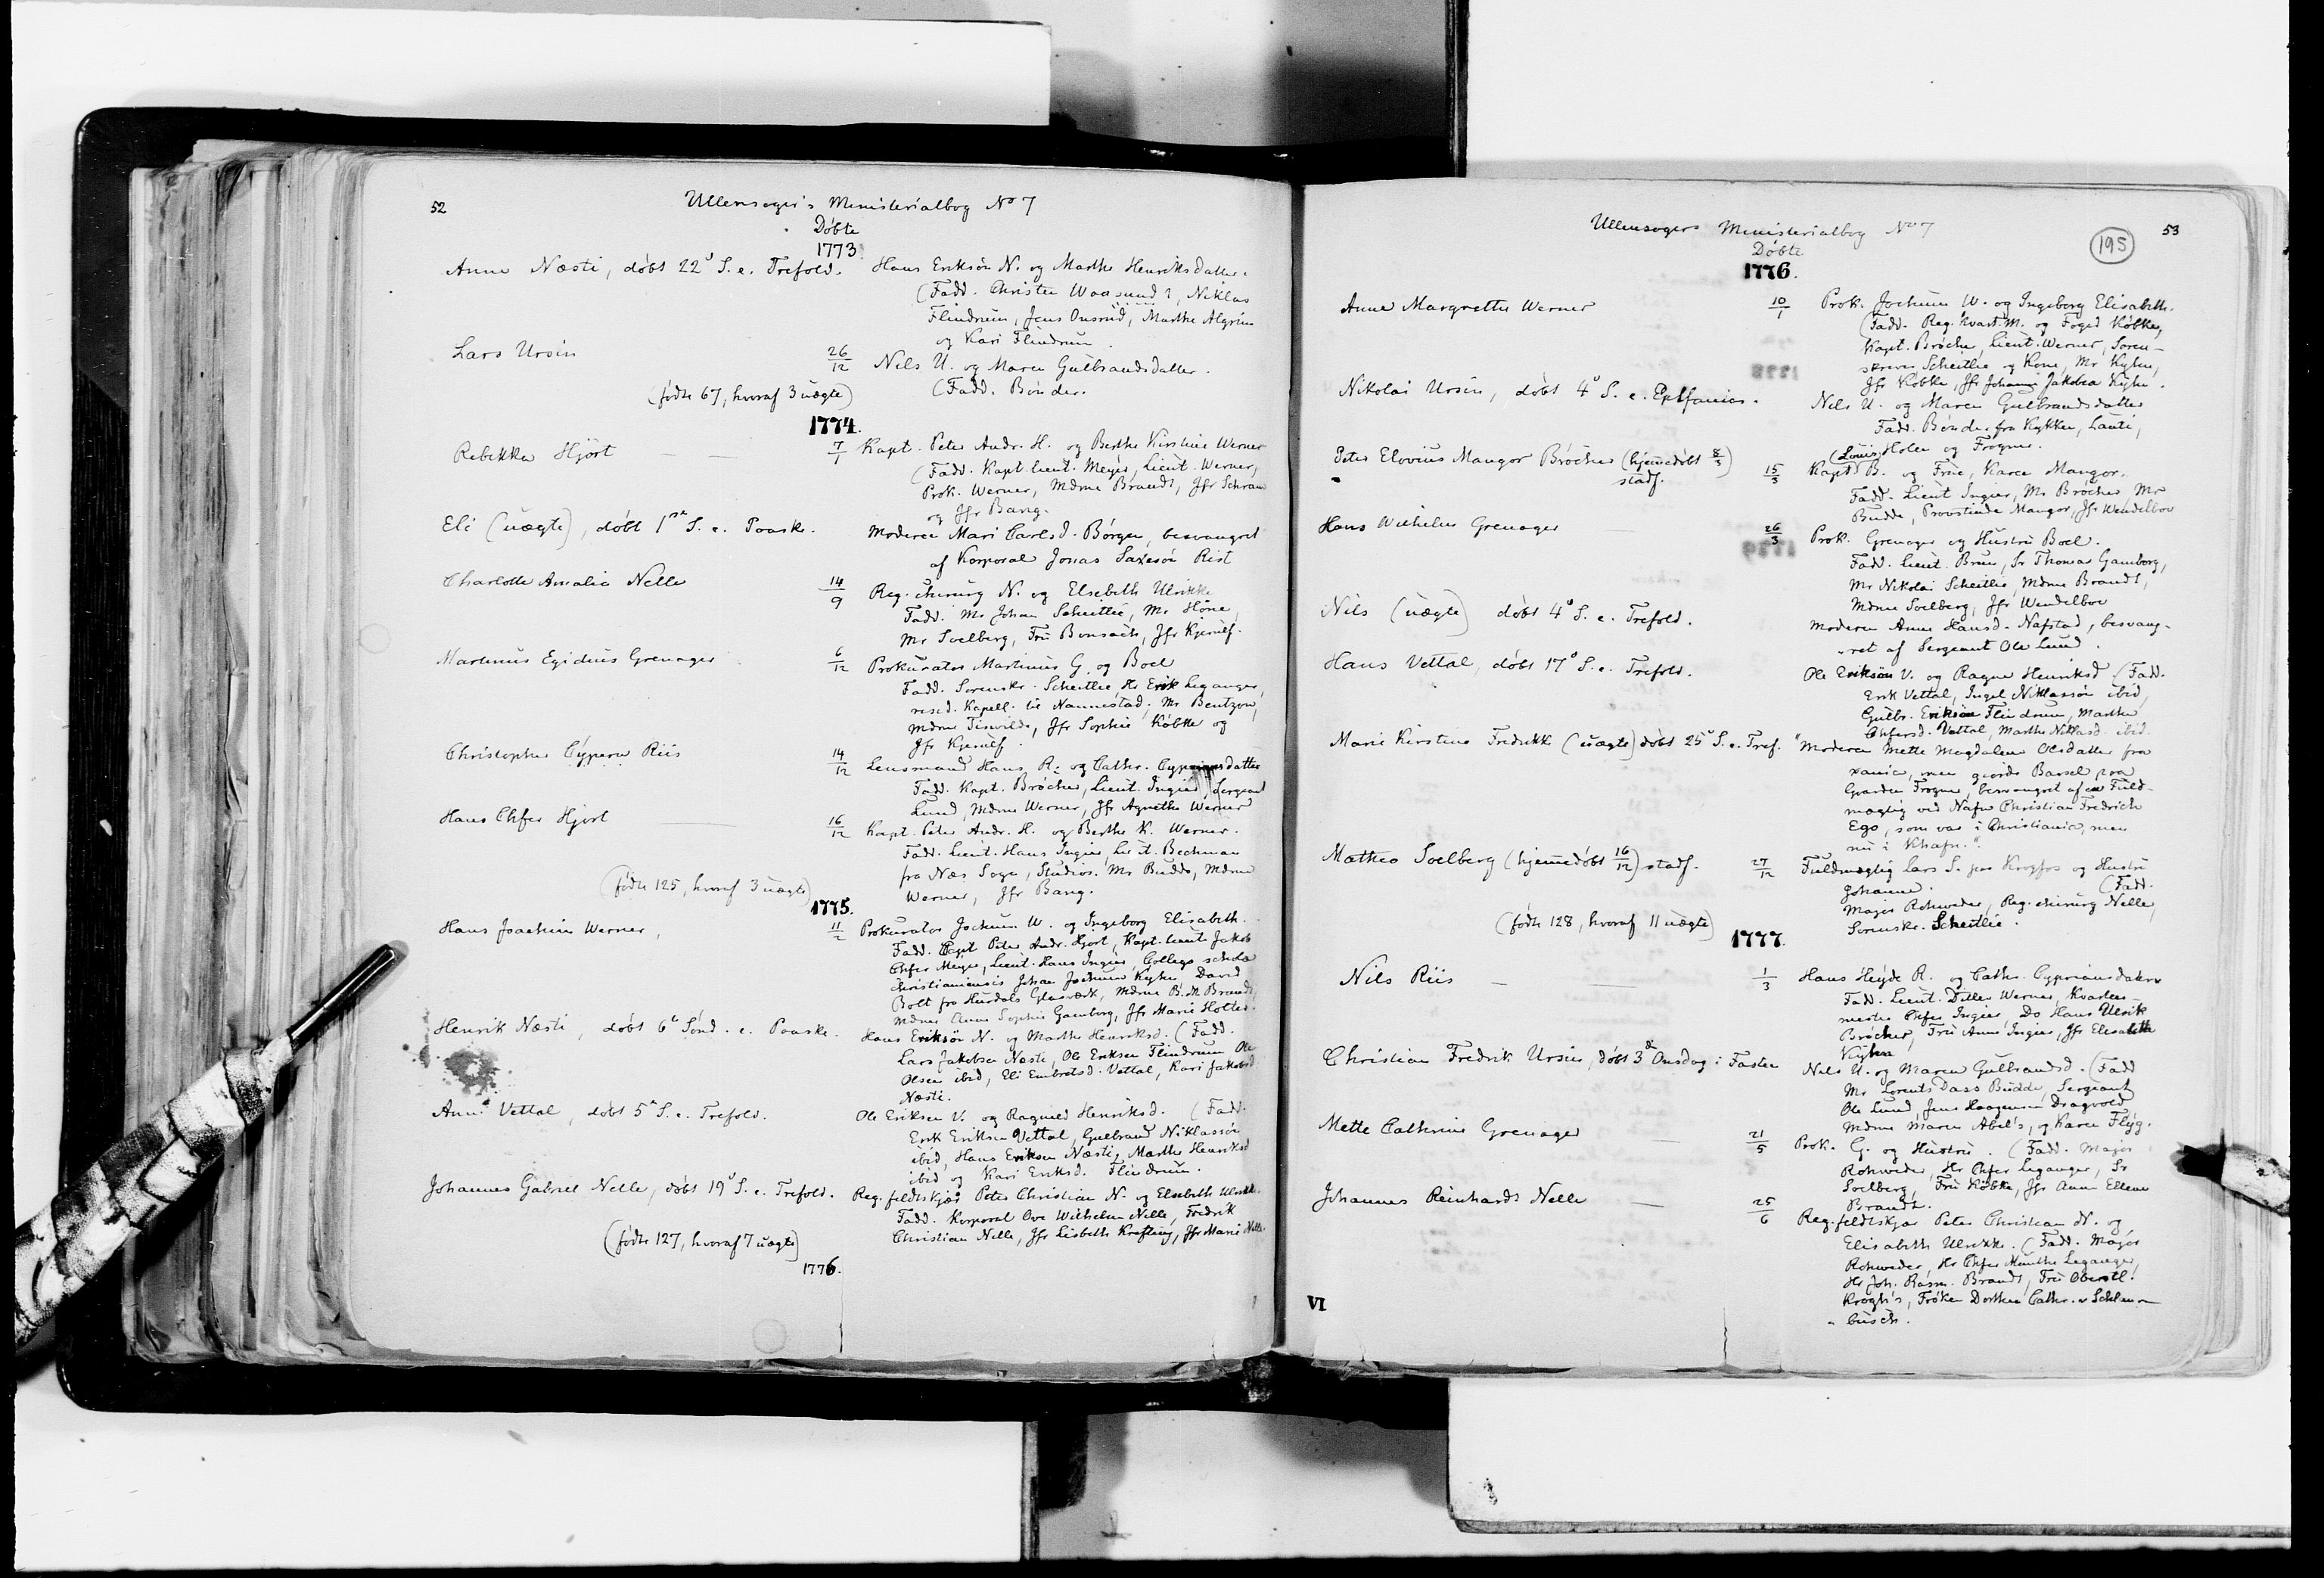 52
Ullensager's Ministerialbog No 7
Døbte
1773
Anne Næsti, døbt 22 S. e. Trefold.
Hans Eriksön N. og Marthe Henriksdatter.
(Fadd. Christen Waasund ?, Niklas
Flindrum, Jens Onsrud, Marthe Algrim
og Kari Flindrum.
Lars Ursin
26/12 Nils U. og Maren Gulbrandsdatter.
(Fadd. Bönder.
(födte 67, hvoraf 3 uægte)
1774.
Rebekka Hjort
7/1 Kapt. Peter Andr. H. og Berthe Kirstine Werner
(Fadd. Kapt. Lieut. Meyer, Lieut. Werner,
Prok. Werner, Mdme Brandt, Jfr Schram
og Jfr Bang.
Eli (uægte), döbt 1ste S. e. Paaske.
Moderen Mari Carlsd. Börger, besvangret
af Korporal Jonas Saxesön Rist
Charlotte Amalia Nelle
14/9 Reg. chirurg N. og Elsebeth Ulrikke
Fadd. Mr Johan Scheitlie, Mr Höne,
Mr Soelberg, Fru Bonsach, Jfr Kjerulf.
Martinus Egidius Grenager
6/12 Prokurator Martinus G. og Boel
Fadd. Sorenskr. Scheitlie, Hr Erik Leganger,
resid. Kapell. til Nannestad, Mr Bentzon,
Mdme Tisvilde, Jfr Sophie Köbke og
Jfr Kjerulf.
Christopher Cÿpern Riis
14/12 Lensmand Hans R. og Cathr. Cypriansdatter
Fadd. Kapt. Bröcher, Lieut. Ingier, Sergeant
Lund, Mdme Werner, Jfr Agnethe Werner
Hans Chfer Hjort
16/12 Kapt. Peter Andr. H. og Berthe K. Werner.
Fadd. Lieut. Hans Ingier, Lieut. Bechman
fra Næs Sogn, Studios. Mr Budde, Mdme
Werner, Jfr Bang.
(födte 125, hvoraf 3 uægte)
1775.
Hans Joachim Werner,
11/2 Prokurator Jochum W. og Ingeborg Elisabeth.
Fadd. Capt Peter Andr. Hjort, Kapt. Lieut Jakob
Chfer Meyer, Lieut. Hans Ingier, Collega schola
Christianiensis Johan Jochum Kyhn, David
Bolt fra Hurdals Glasværk, Mdme B. M. Brandt,
Mdme Anne Sophie Gamborg, Jfr Marie Holter.
Henrik Næsti, döbt 6 Sönd. e. Paaske.
Hans Eriksön N. og Marthe Henriksd. (Fadd.
Lars Jakobsen Næsti, Ole Eriksen Flindrum, Ole
Olsen ibid, Eli Embretsd. Vettal, Kari Jakobsd
Næsti.
Anne Vettal, döbt 5 S. e. Trefold.
Ole Eriksen V. og Ragnild Henriksd. (Fadd.
Erik Eriksen Vettal, Gulbrand Niklassön
ibid, Hans Eriksen Næsti, Marthe Henriksd
ibid og Kari Eriksd. Flindrum.
Johannes Gabriel Nelle, döbt 19 S. e. Trefold.
Reg. feldtskjær Peter Christian N. og Elsebeth Ulrikke.
Fadd. Korporal Ove Wilhelm Nelle, Fredrik
Christian Nelle, Jfr Lisbeth Krefting, Jfr Marie Nelle.
(födte 127, hvoraf 7 uægte)
1776.
Ullensagers Ministerialbog No 7
53
195
Döbte
1776.
Anne Margrethe Werner
10/1 Prok. Jochum W. og Ingeborg Elisabeth.
(Fadd. Reg. kvart. M. og Foged Köbke,
Kapt. Bröcher, Lieut. Werner, Soren-
skriver Scheitlie og Kone, Mr Kyhn,
Jfr Köbke, Jfr Johanne Jakobea Kyhn.
Nikolai Ursin, döbt 4 S. e. Epifanias.
Nils U. og Maren Gulbrandsdatter
Fadd. Bönder fra Kykken, Lauti,
(Louis) Holen og Frogner.
Peter Elovius Mangor Bröcher (hjemedöbt 8/3)
stadf.
15/3 Kapt B. og Frue, Karen Mangor.
Fadd. Lieut Ingier, Mr Bröcher, Mr
Budde, Provstinde Mangor, Jfr Wendelboe
Hans Wilhelm Grenager
26/3 Prok. Grenager og Hustru Boel.
Fadd. Lieut. Brun, Sr Thomas Gamborg,
Mr Nikolai Scheitlie, Mdme Brandt,
Mdme Soelberg, Jfr Wendelboe
Nils (uægte) döbt 4 S. e. Trefold.
Moderen Anne Hansd. Nafstad, besvang-
ret af Sergeant Ole Lund.
Hans Vettal, döbt 17 S. e. Trefold.
Ole Eriksön V. og Ragne Henriksd (Fadd.
Erik Vettal, Ingel Niklassön ibid,
Gulbr. Eriksön Flindrum, Marthe
Chfersd. Vettal, Marthe Niklasd ibid.
Marie Kirstine Fredrikke (uægte) döbt 25 S. e. Tref.
"Moderen Mette Magdalene Olsdatter fra
xania, men giorde Barsel paa
Gaarden Frogner, besvangret af en Fuld-
mægtig ved Nafn Christian Fredrich
Ege, som var i Christiania, men
nu i Khafn."
Mathea Soelberg (hjemedöbt 16/12) stadf.
27/12 Fuldmægtig Lars S. paa Krogfos og Hustru
Johanne. (Fadd.
Major Rohweder, Reg. chirurg Nelle,
Sorenskr. Scheitlie.
(födte 128, hvoraf 11 uægte)
1777.
Nils Riis
1/3 Hans Heyde R. og Cathr. Cypriansdatter
Fad. Lieut. Ditlev Werner, Kvarteer-
mester Chfer Ingier, Do Hans Ulrik
Bröcher, Fru Anne Ingier, Jfr Elisabeth
Kyhn
Christian Fredrik Ursin, döbt 3de Onsdag i Fasten
Nils U. og Maren Gulbrandsd. (Fadd
Mr Lorents Dass Budde, Sergeant
Ole Lund, Jens Haagensen Dragvold
Mdme Maren Abel's, og Karen Flÿg.
Mette Cathrine Grenager
21/5 Prok. G. og Hustru. (Fadd. Major
Rohweder, Hr Chfer Leganger, Sr
Soelberg, Fru Köbke, Jfr Anne Ellene
Brandt.
Johannes Reinhardt Nelle
25/6 Reg. feldtskjær Peter Christian N. og
Elisabeth Ulrikke. (Fadd. Major
Rohweder, Hr Chfer Munthe Leganger,
Hr Joh. Rasm. Brandt, Fru Oberstl.
Krogh's, Fröken Dorthea Cathr. v Schlan-
busch.
VI